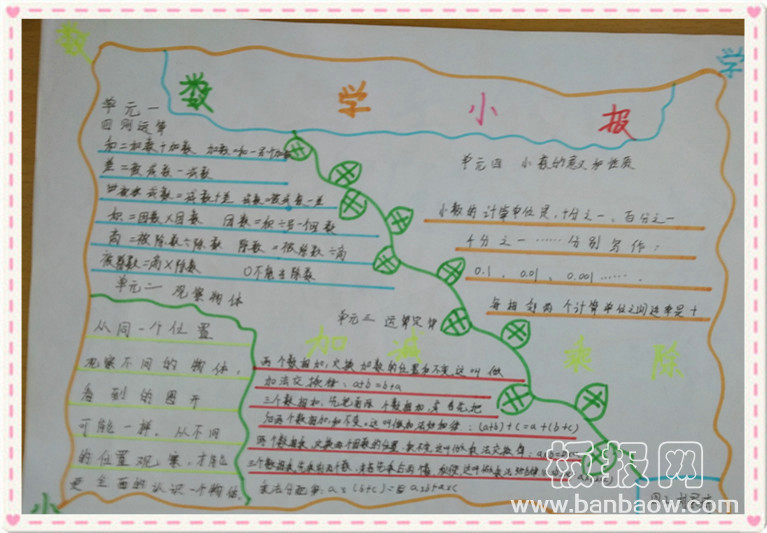 数 学
数 学 小 报
单元一
四则运算
和=加数+加数 加数=和-另一个加数
差=被减数-减数
被减数=减数+差 减数=被减数-差
积=因数×因数 因数=积÷另一个因数
商=被除数÷除数 除数=被除数÷商
被除数=商×除数 0不能当除数
单元二 观察物体
从同一个位置
观察不同的物体,
看到的图形
可能一样。从不同
的位置观察,才能
更全面的认识一个物体。
单元四 小数的意义和性质
小数的计算单位是,十分之一,百分之一
千分之一……分别写作:
0.1、0.01、0.001……。
每相邻两个计算单位之间进率是十
单元三 运算定律
加 减 乘 除
两个数相加,交换加数的位置和不变,这叫做
加法交换律:a+b=b+a
三个数相加,先把前两个数相加,或者先把
后两个数相加,和不变,这叫做加法结合律:(a+b)+c=a+(b+c)
两个数相乘,交换两个因数的位置,积不变,这叫做乘法交换律:
三个数相乘,先乘前两个数,或者先乘后两个数,积不变,这叫做乘法结合律
乘法分配律:a×(b+c)=a×b+a×c
小
板报网
www.banbaow.com